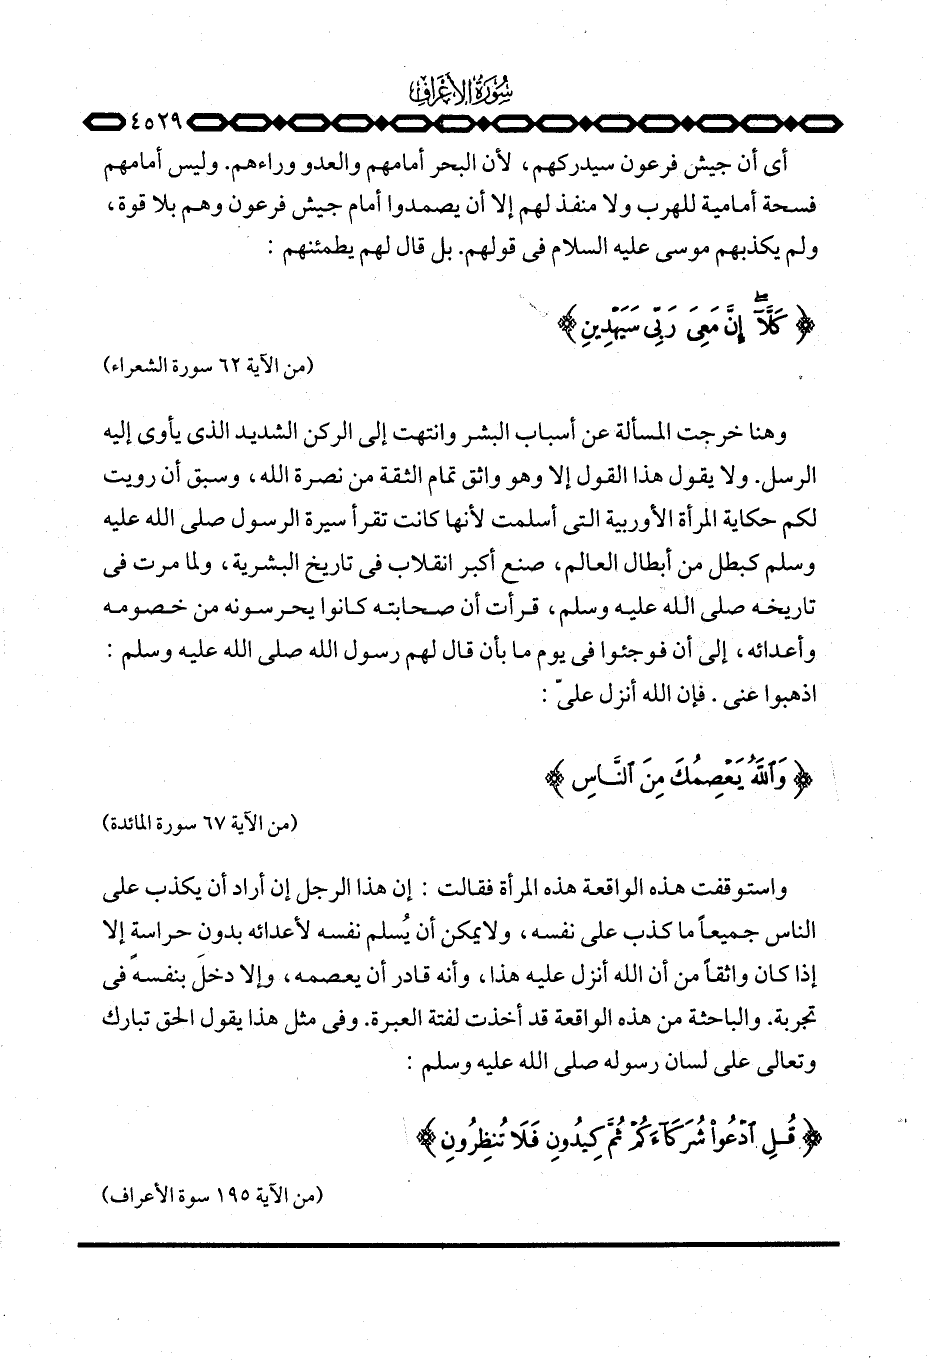 سُورَةُ الأَعْرَافِ
٤٥٢٩
أى أن جيش فرعون سيدركهم، لأن البحر أمامهم والعدو وراءهم. وليس أمامهم
فسحة أمامية للهرب ولا منفذ لهم إلا أن يصمدوا أمام جيش فرعون وهم بلا قوة،
ولم يكذبهم موسى عليه السلام فى قولهم. بل قال لهم يطمئنهم :
﴿ كَلَّآ ۖ إِنَّ مَعِىَ رَبِّى سَيَهْدِينِ ﴾
(من الآية ٦٢ سورة الشعراء)
وهنا خرجت المسألة عن أسباب البشر وانتهت إلى الركن الشديد الذى يأوى إليه
الرسل. ولا يقول هذا القول إلا وهو واثق تمام الثقة من نصرة الله، وسبق أن رويت
لكم حكاية المرأة الأوربية التى أسلمت لأنها كانت تقرأ سيرة الرسول صلى الله عليه
وسلم كبطل من أبطال العالم، صنع أكبر انقلاب فى تاريخ البشرية، ولما مرت فى
تاريخه صلى الله عليه وسلم، قرأت أن صحابته كانوا يحرسونه من خصومه
وأعدائه، إلى أن فوجئوا فى يوم ما بأن قال لهم رسول الله صلى الله عليه وسلم :
اذهبوا عنى . فإن الله أنزل علىّ :
﴿ وَٱللَّهُ يَعْصِمُكَ مِنَ ٱلنَّاسِ ﴾
(من الآية ٦٧ سورة المائدة)
واستوقفت هذه الواقعة هذه المرأة فقالت : إن هذا الرجل إن أراد أن يكذب على
الناس جميعاً ما كذب على نفسه، ولايمكن أن يُسلم نفسه لأعدائه بدون حراسة إلا
إذا كان واثقاً من أن الله أنزل عليه هذا، وأنه قادر أن يعصمه، وإلا دخل بنفسه فى
تجربة. والباحثة من هذه الواقعة قد أخذت لفتة العبرة. وفى مثل هذا يقول الحق تبارك
وتعالى على لسان رسوله صلى الله عليه وسلم :
﴿ قُلِ ٱدْعُوا۟ شُرَكَآءَكُمْ ثُمَّ كِيدُونِ فَلَا تُنظِرُونِ ﴾
(من الآية ١٩٥ سوة الأعراف)